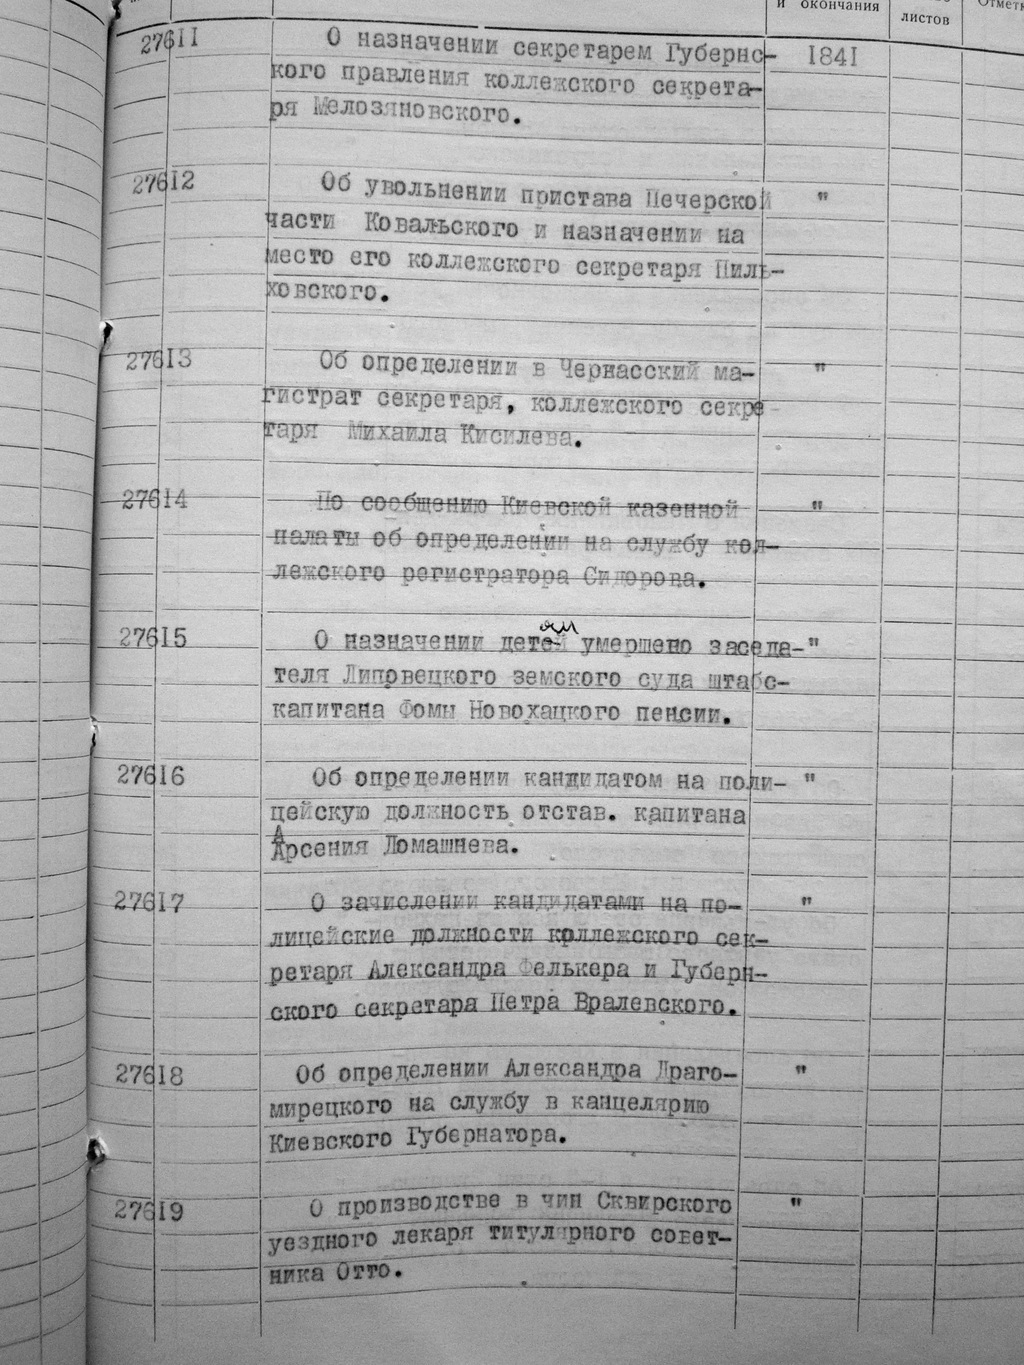 и окончания
листов
27611 О назначении секретарем Губернс- 1841
кого правления коллежского секрета-
ря Мелозяновского.
27612 Об увольнении пристава Печерской "
части Ковальского и назначении на
место его коллежского секретаря Пиль-
ховского.
27613 Об определении в Чернасский ма- "
гистрат секретаря, коллежского секре-
таря Михаила Кисилева.
27614 По сообщению Киевской казенной "
палаты об определении на службу кол-
лежского регистратора Сидорова.
27615 О назначении детям умершено заседа- "
теля Липовецкого земского суда штабс-
капитана Фомы Новохацкого пенсии.
27616 Об определении кандидатом на поли- "
цейскую должность отстав. капитана
Арсения Ломашнева.
27617 О зачислении кандидатами на по- "
лицейские должности коллежского сек-
ретаря Александра Фелькера и Губерн-
ского секретаря Петра Вралевского.
27618 Об определении Александра Драго- "
мирецкого на службу в канцелярию
Киевского Губернатора.
27619 О производстве в чин Сквирского "
уездного лекаря титулярного совет-
ника Отто.